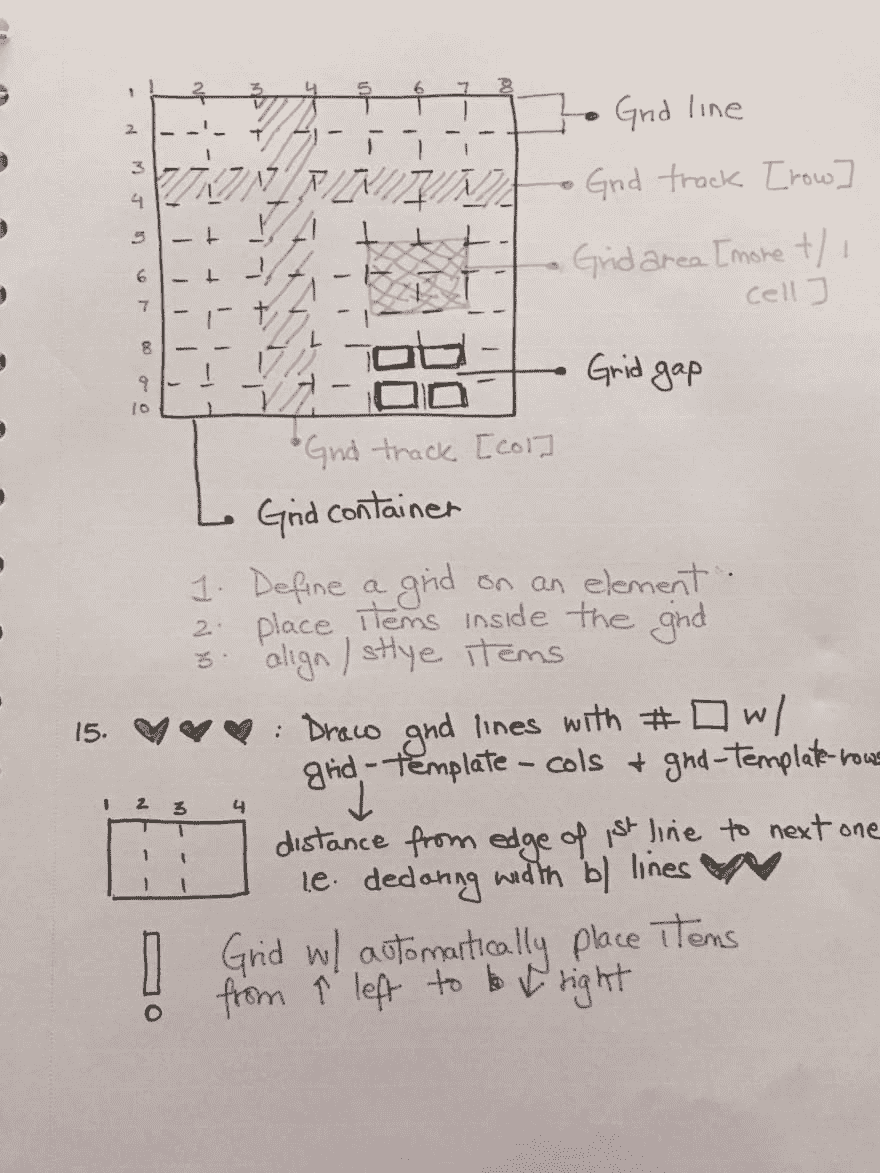 1 2 3 4 5 6 7 8
1
2
3
4
5
6
7
8
9
10
Grid line
Grid track [row]
Grid area [more t/ 1
cell]
Grid gap
Grid track [col]
Grid container
1. Define a grid on an element
2. place items inside the grid
3. align / stlye items
15. ♥♥♥ : Draw grid lines with # □ w/
grid-template-cols + grid-template-rows
↓
1 2 3 4
distance from edge of 1st line to next one
i.e. declaring width b/ lines ♥♥
! Grid w/ automartically place items
from ↑ left to b ↓ right